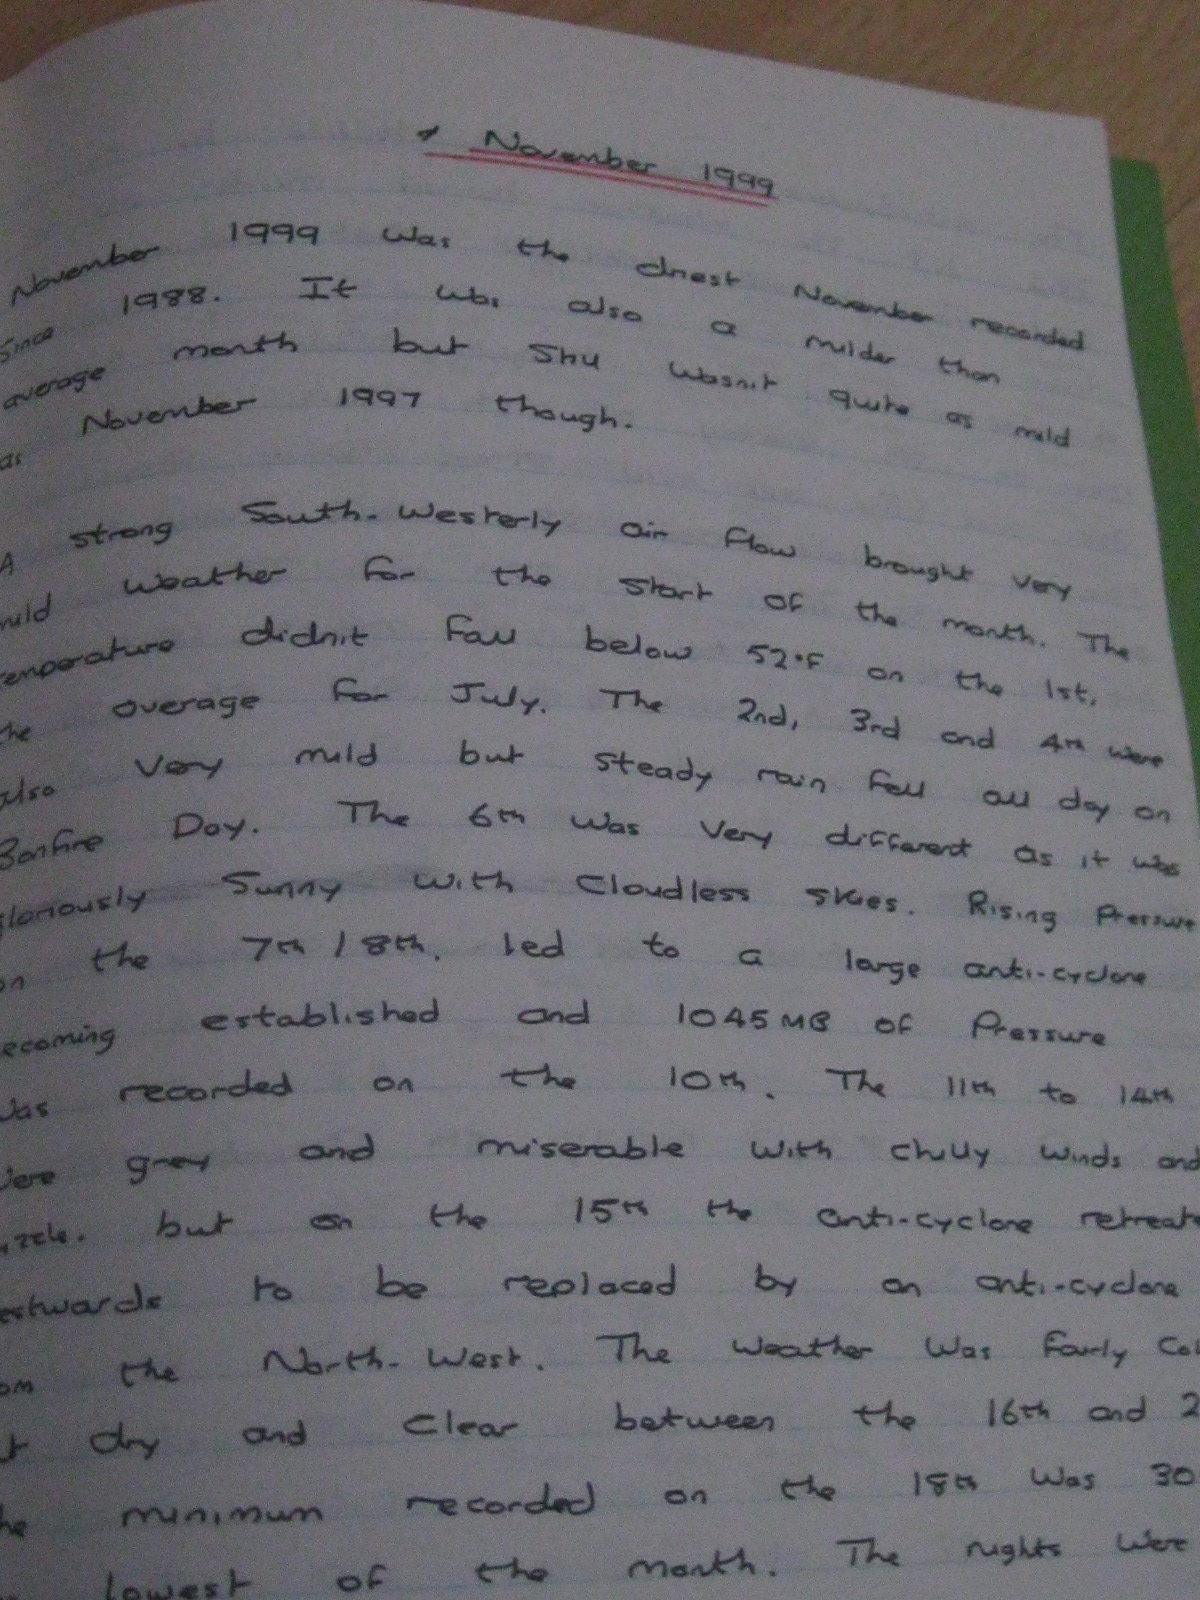 November 1999
November 1999 was the driest November recorded
since 1988. It was also a milder than
average month but still wasn't quite as mild
as November 1997 though.
A strong South-Westerly air flow brought very
mild weather for the start of the month. The
temperature didn't fall below 52°F on the 1st,
the average for July. The 2nd, 3rd and 4th were
also very mild but steady rain fell all day on
Bonfire Day. The 6th was very different as it was
gloriously sunny with cloudless skies. Rising Pressure
on the 7th / 8th. led to a large anti-cyclone
becoming established and 1045 MB of Pressure
was recorded on the 10th. The 11th to 14th
were grey and miserable with chilly winds and
but on the 15th the anti-cyclone
to be replaced by an anti-cyclone
from the North-West. The weather was fairly
dry and clear between the 16th and
The minimum recorded on the 18th was 30
lowest of the month. The nights were